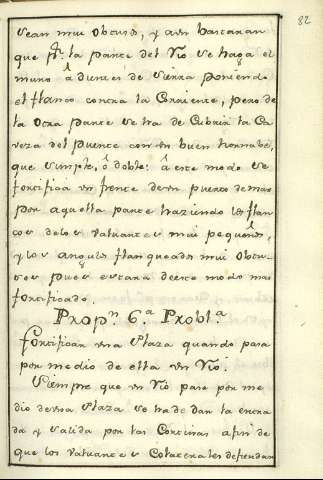 82
sean mui obcuros, y aun bastaran
que pr. la parte del Rio se haga el
muro â dientes de sierra poniendo
el flanco contra la Coriente, pero de
la otra parte se ha de Cubrir la Ca
veza del Puente con un buen hornabe,
que simple, ô doble: â este modo se
fortifica en frente de un puerto de mar
por aquella parte haziendo los flan
cos de los valuartes mui pequeños,
y los angulos flanqueados mui obtu
sos pues estara de este modo mas
fortificado.
Propn. 6.a Probla.
Fortificar una Plaza quando pasa
por medio de ella un Rio.
Siempre que un Rio pase por me
dio de una Plaza se ha de dar la entra
da y salida por las Cortinas afin de
que los Valuartes Colaterales defiendan